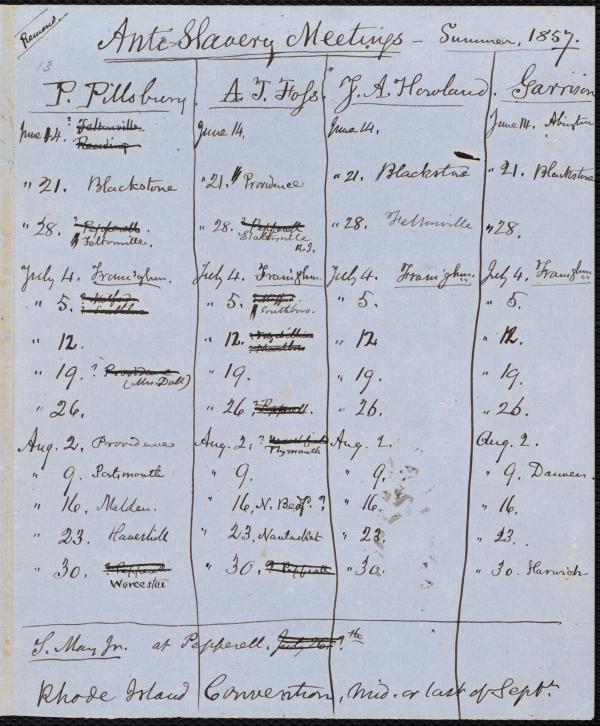 Remond.
Anti-Slavery Meetings - Summer, 1857.
13
P. Pillsbury. A. T. Foss. J. A. Howland. Garrison
June 14. ? Feltonville. June 14. June 14. June 14. Abington
Reading
" 21. Blackstone " 21. Providence " 21. Blackstone " 21. Blackstone
" 28. ? Pepperell. " 28. ? Pepperell " 28. Feltonville " 28.
Feltonville. Slatersville R.I.
July 4. Framighm. July 4. Framighm. July 4. Framighm. July 4. Framighm.
" 5. " 5. " 5. " 5.
Southboro.
" 12. " 12. " 12. " 12.
" 19. ? Providence " 19. " 19. " 19.
(Mrs. Dall)
" 26. " 26. ? Pepperell. " 26. " 26.
Aug. 2. Providence Aug. 2. ? Aug. 2. Aug. 2.
Plymouth
" 9. Portsmouth " 9. " 9. " 9. Danvers.
" 16. Malden. " 16. N. Bedf. ? " 16. " 16.
" 23. Haverhill " 23. Nantucket " 23. " 23.
" 30. ? Pepperell " 30. ? Pepperell " 30. " 30. Harwich
Worcester
S. May Jr. at Pepperell, July 26. ? the
Rhode Island Convention, mid. or last of Sept.